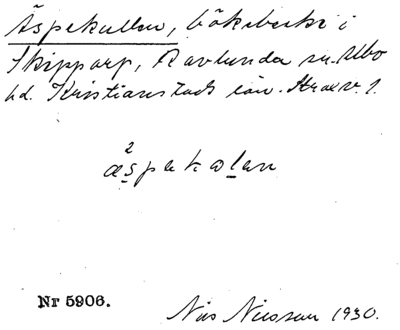 Äspekullen, bökebacke i
Skipparp, Ravlunda sn. Albo
hd. Kristianstads län.
²
äspekolan
Nr 5906.
Nils Nilsson 1930.